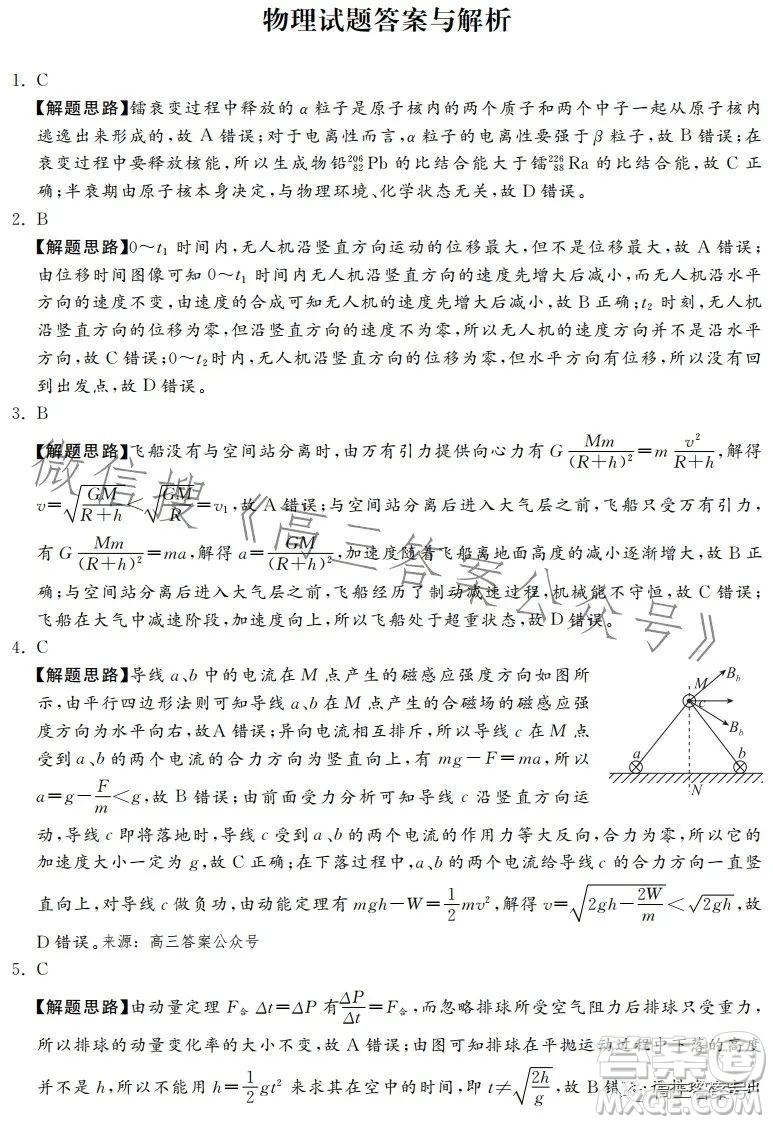 物理试题答案与解析
1. C
【解题思路】镭衰变过程中释放的 α 粒子是原子核内的两个质子和两个中子一起从原子核内
逃逸出来形成的,故 A 错误;对于电离性而言,α 粒子的电离性要强于 β 粒子,故 B 错误;在
衰变过程中要释放核能,所以生成物铅²⁰⁶₈₂Pb 的比结合能大于镭²²⁶₈₈Ra 的比结合能,故 C 正
确;半衰期由原子核本身决定,与物理环境、化学状态无关,故 D 错误。
2. B
【解题思路】0～t₁ 时间内,无人机沿竖直方向运动的位移最大,但不是位移最大,故 A 错误;
由位移时间图像可知 0～t₁ 时间内无人机沿竖直方向的速度先增大后减小,而无人机沿水平
方向的速度不变,由速度的合成可知无人机的速度先增大后减小,故 B 正确;t₂ 时刻,无人机
沿竖直方向的位移为零,但沿竖直方向的速度不为零,所以无人机的速度方向并不是沿水平
方向,故 C 错误;0～t₂时内,无人机沿竖直方向的位移为零,但水平方向有位移,所以没有回
到出发点,故 D 错误。
3. B
【解题思路】飞船没有与空间站分离时,由万有引力提供向心力有 G Mm/(R+h)²=m v²/(R+h),解得
v=√(GM/(R+h))<√(GM/R)=v₁,故 A 错误;与空间站分离后进入大气层之前,飞船只受万有引力,
有 G Mm/(R+h)²=ma,解得 a=GM/(R+h)²,加速度随着飞船离地面高度的减小逐渐增大,故 B 正
确;与空间站分离后进入大气层之前,飞船经历了制动减速过程,机械能不守恒,故 C 错误;
飞船在大气中减速阶段,加速度向上,所以飞船处于超重状态,故 D 错误。
微信搜《高三答案公众号》
4. C
【解题思路】导线 a、b 中的电流在 M 点产生的磁感应强度方向如图所
示,由平行四边形法则可知导线 a、b 在 M 点产生的合磁场的磁感应强
度方向为水平向右,故A 错误;异向电流相互排斥,所以导线 c 在 M 点
受到 a、b 的两个电流的合力方向为竖直向上,有 mg-F=ma,所以
a=g-F/m<g,故 B 错误;由前面受力分析可知导线 c 沿竖直方向运
动,导线 c 即将落地时,导线 c 受到 a、b 的两个电流的作用力等大反向,合力为零,所以它的
加速度大小一定为 g,故 C 正确;在下落过程中,a、b 的两个电流给导线 c 的合力方向一直竖
直向上,对导线 c 做负功,由动能定理有 mgh-W=1/2mv²,解得 v=√(2gh-2W/m)<√(2gh),故
D 错误。来源: 高三答案公众号
M
B_b
c
B_b
a
b
N
5. C
【解题思路】由动量定理 F合 Δt=ΔP 有ΔP/Δt=F合,而忽略排球所受空气阻力后排球只受重力,
所以排球的动量变化率的大小不变,故 A 错误;由图可知排球在平抛运动过程中下落的高度
并不是 h,所以不能用 h=1/2gt² 来求其在空中的时间,即 t≠√(2h/g),故 B 错
出
答案圈
MXQE.COM